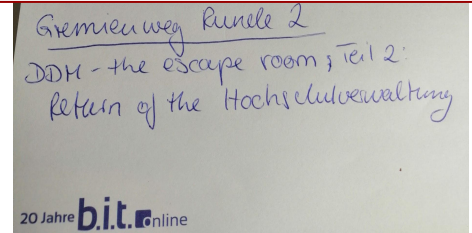 Gremienweg Runde 2
DDM - the escape room, Teil 2:
Return of the Hochschulverwaltung
20 Jahre b.i.t.online